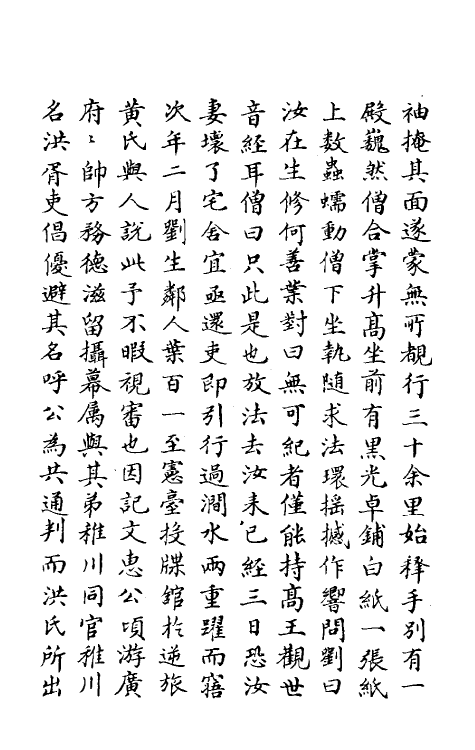 袖掩其面遂蒙無所覩行三十余里始釋手别有一
殿巍然僧合掌升髙坐前有黒光卓鋪白紙一張紙
上数蟲蠕動僧下坐執随求法環揺撼作響問劉曰
汝在生修何善業對曰無可紀者僅能持髙王觀世
音經耳僧曰只此是也放法去汝来已經三日恐汝
妻壞了宅舍宜亟還吏即引行過澗水兩重躍而寤
次年二月劉生鄰人葉百一至憲臺投牒舘於逆旅
黄氏與人説此予不暇視審也因記文恵公頃游廣
府〻帥方務徳滋留攝幕属與其弟稚川同官稚川
名洪胥吏倡優避其名呼公為共通判而洪氏所出